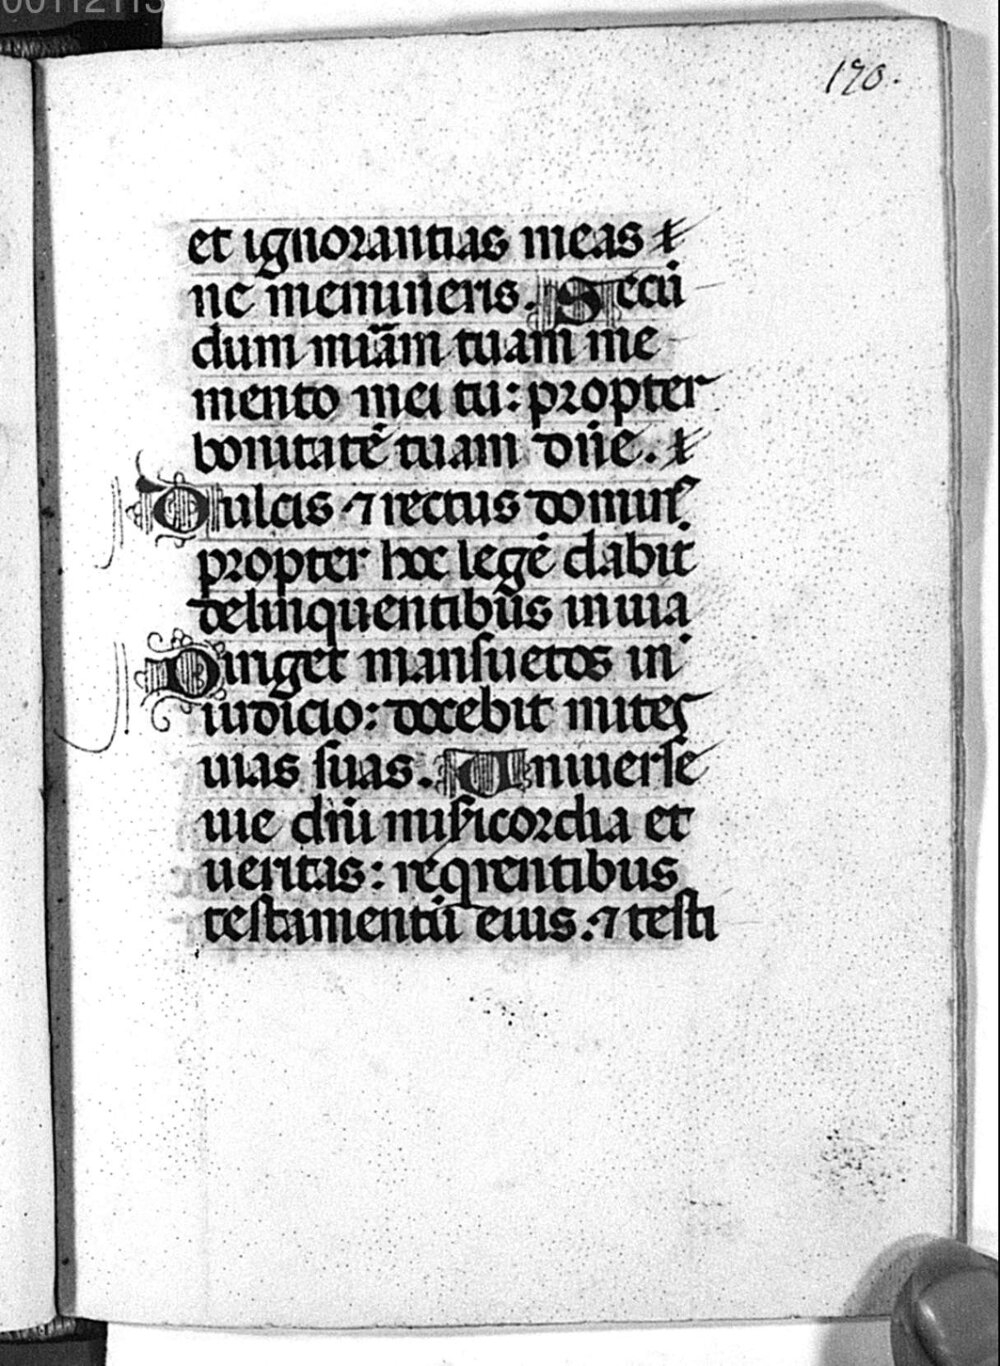 00112113
170.
et ignorantias meas
ne memineris. Secū
dum miām tuam me
mento mei tu: propter
bonitatē tuam dn̄e.
Dulcis ⁊ rectus domin᷒
propter hoc legē dabit
delinquentibus in uia
Diriget mansuetos in
iudicio: docebit mites
uias suas. Uniuerse
uie dn̄i misericordia et
ueritas: reqirentibus
testamentū eius. ⁊ testi